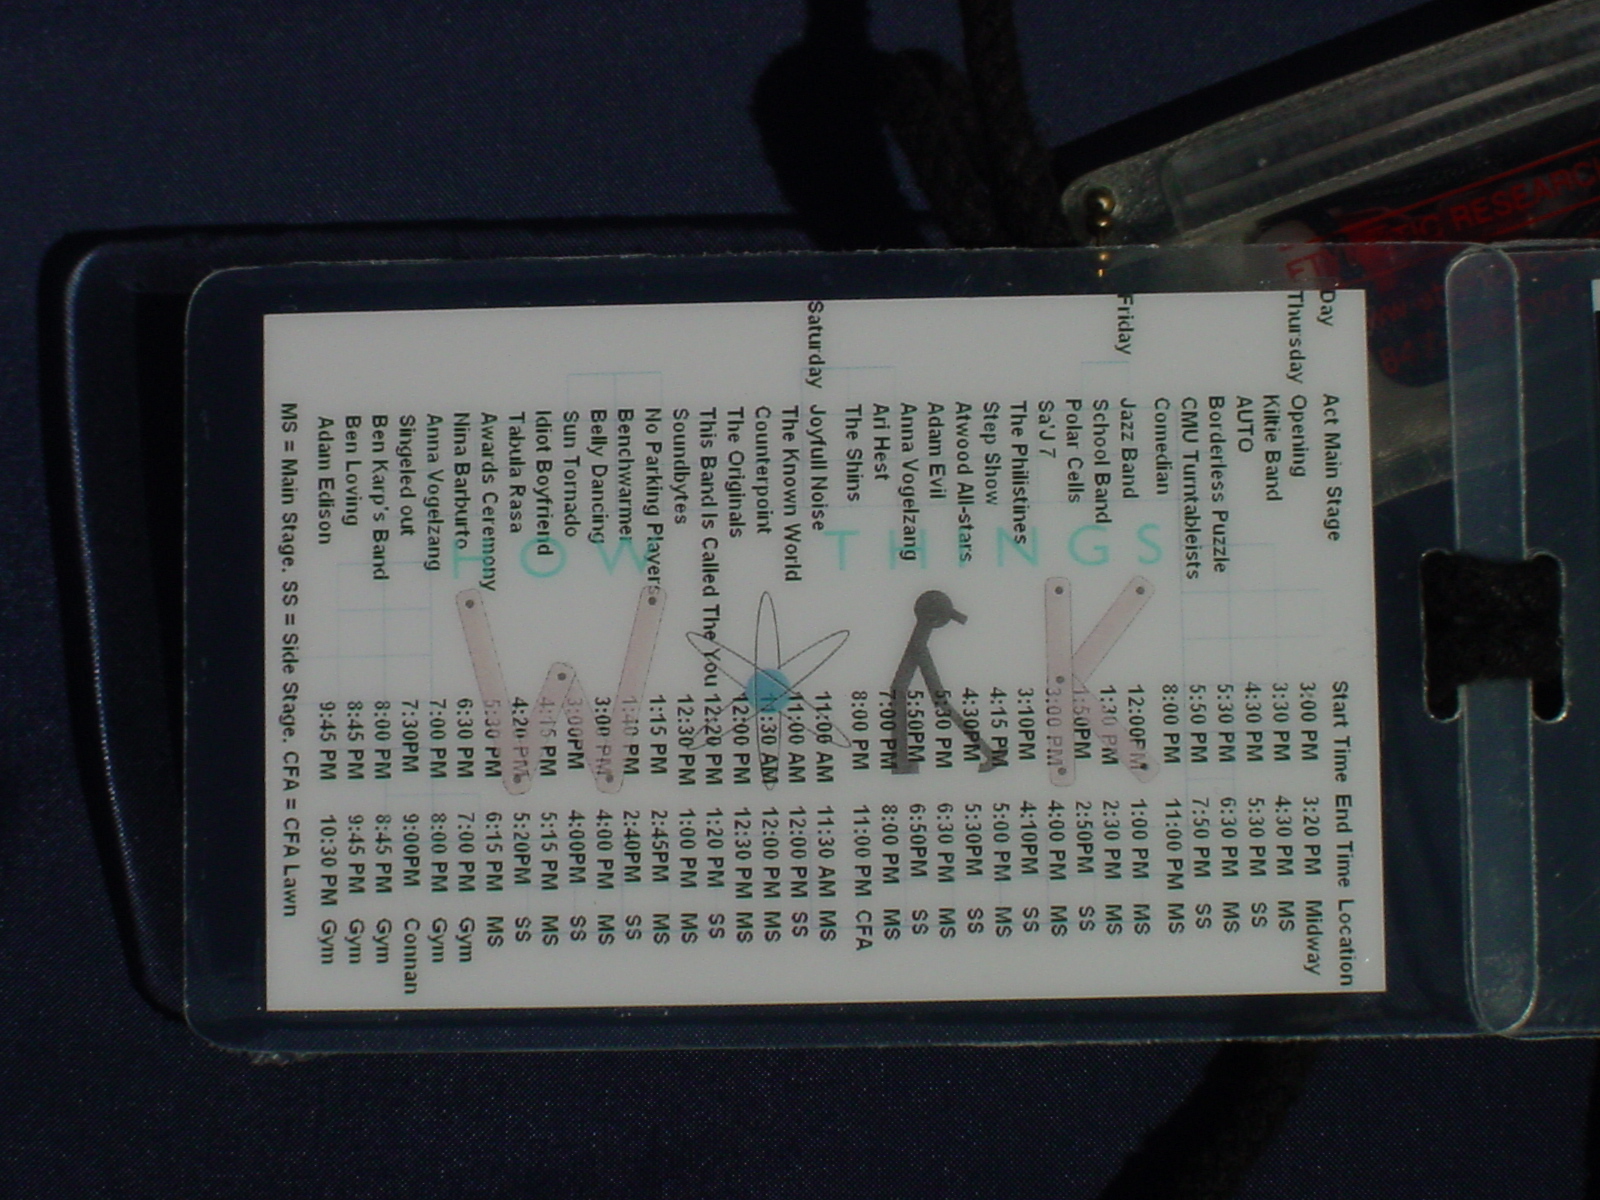 Day Act Main Stage Start Time End Time Location
Thursday Opening 3:00 PM 3:20 PM Midway
Kiltie Band 3:30 PM 4:30 PM MS
AUTO 4:30 PM 5:30 PM SS
Borderless Puzzle 5:30 PM 6:30 PM MS
CMU Turntableists 5:50 PM 7:50 PM SS
Comedian 8:00 PM 11:00 PM MS
Friday Jazz Band 12:00PM 1:00 PM MS
School Band 1:30 PM 2:30 PM MS
Polar Cells 1:50PM 2:50PM SS
Sa'J 7 3:00 PM 4:00 PM MS
The Philistines 3:10PM 4:10PM SS
Step Show 4:15 PM 5:00 PM MS
Atwood All-stars 4:30PM 5:30PM SS
Adam Evil 5:30 PM 6:30 PM MS
Anna Vogelzang 5:50PM 6:50PM SS
Ari Hest 7:00 PM 8:00 PM MS
The Shins 8:00 PM 11:00 PM CFA
Saturday Joyfull Noise 11:00 AM 11:30 AM MS
The Known World 11:00 AM 12:00 PM SS
Counterpoint 11:30 AM 12:00 PM MS
The Originals 12:00 PM 12:30 PM MS
This Band Is Called The You 12:20 PM 1:20 PM SS
Soundbytes 12:30 PM 1:00 PM MS
No Parking Players 1:15 PM 2:45PM MS
Benchwarmer 1:40 PM 2:40PM SS
Belly Dancing 3:00 PM 4:00 PM MS
Sun Tornado 3:00PM 4:00PM SS
Idiot Boyfriend 4:15 PM 5:15 PM MS
Tabula Rasa 4:20 PM 5:20PM SS
Awards Ceremony 5:30 PM 6:15 PM MS
Nina Barburto 6:30 PM 7:00 PM Gym
Anna Vogelzang 7:00 PM 8:00 PM Gym
Singeled out 7:30PM 9:00PM Connan
Ben Karp's Band 8:00 PM 8:45 PM Gym
Ben Loving 8:45 PM 9:45 PM Gym
Adam Edison 9:45 PM 10:30 PM Gym
MS = Main Stage. SS = Side Stage. CFA = CFA Lawn
HOW THINGS
WORK
RESEARCH